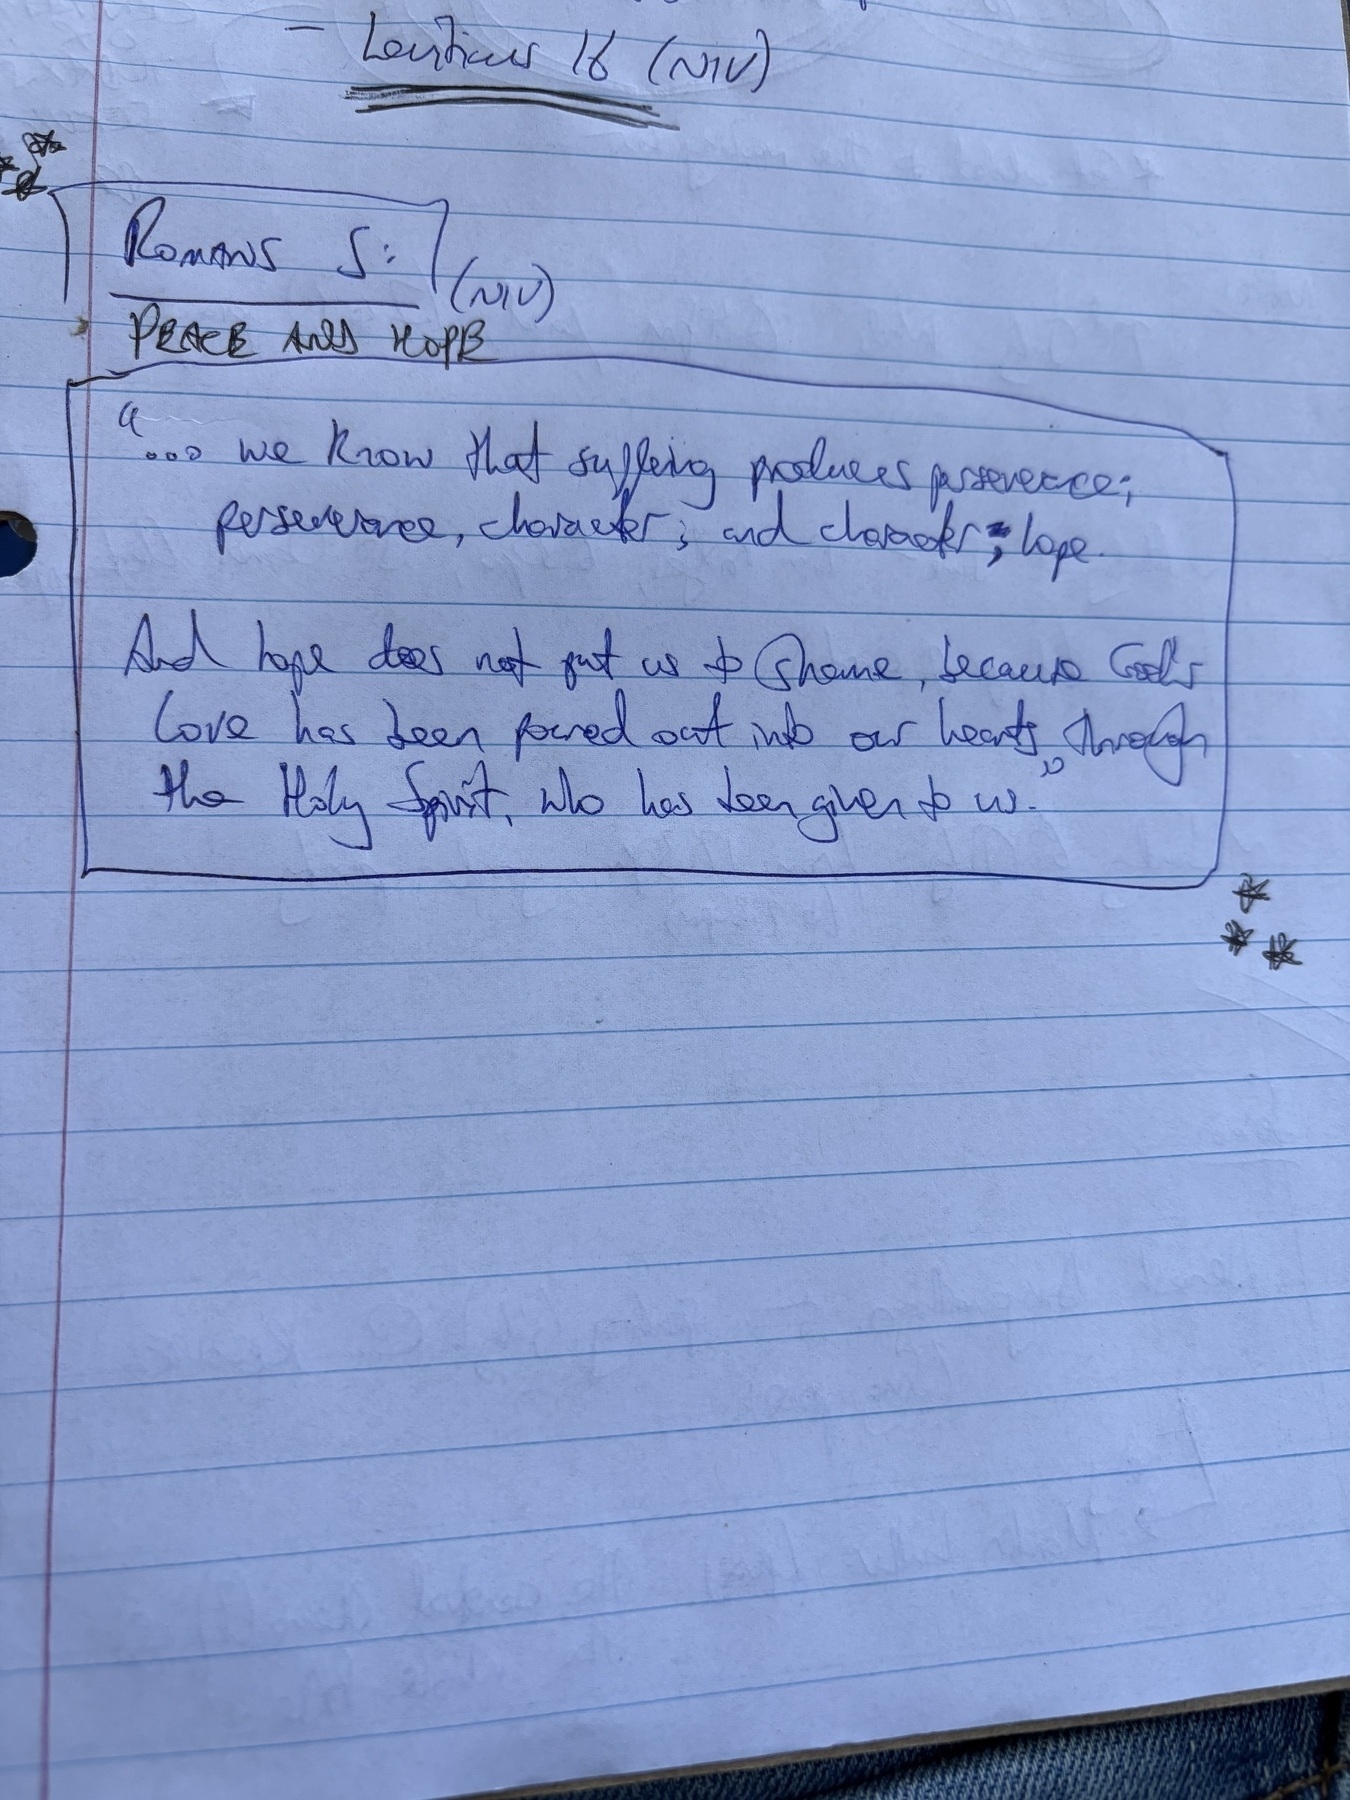 - Leviticus 16 (NIV)
Romans 5:
(NIV)
PEACE AND HOPE
"... we know that suffering produces perseverence;
perseverance, character; and character; hope.
And hope does not put us to shame, because God's
love has been poured out into our hearts, through
the Holy Spirit, who has been given to us."